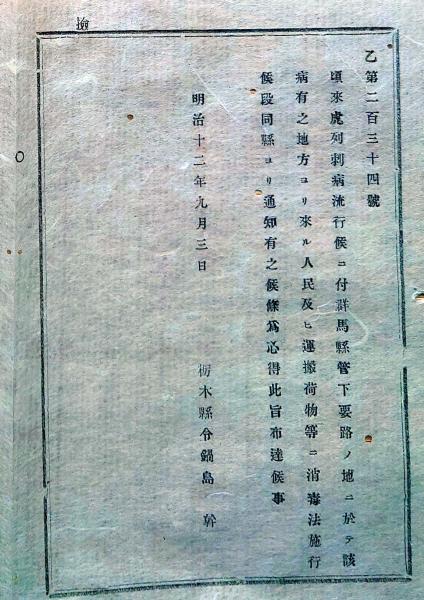 檢
乙第二百三十四號
頃來虎列刺病流行候ニ付群馬縣管下要路ノ地ニ於テ該
病有之地方ヨリ來ル人民及ヒ運搬荷物等ニ消毒法施行
候段同縣ヨリ通知有之候條爲心得此旨布達候事
明治十二年九月三日
栃木縣令鍋島幹